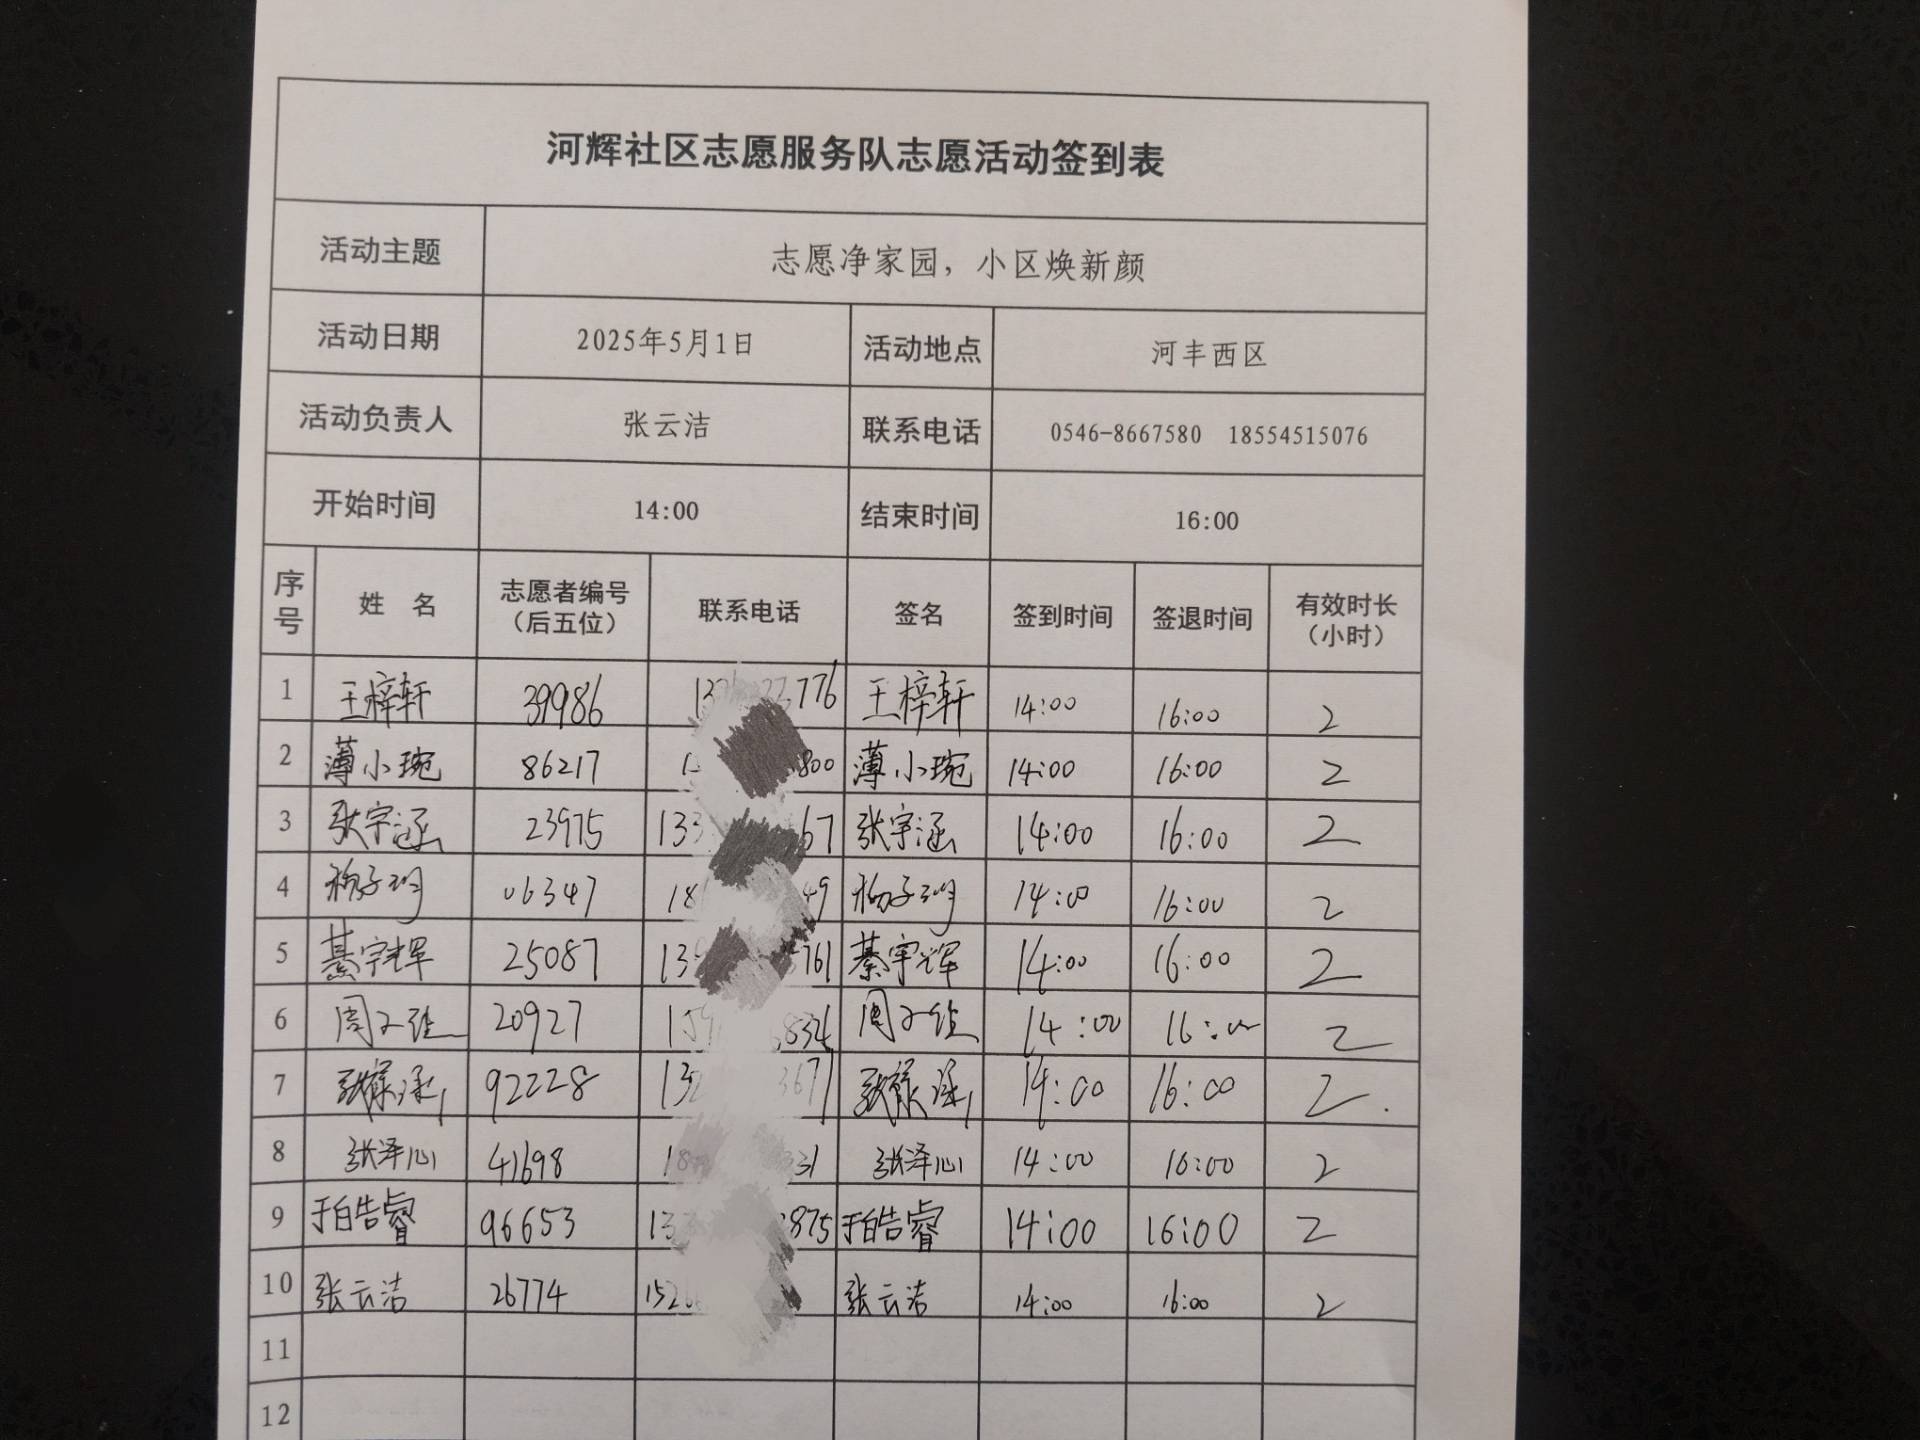 河辉社区志愿服务队志愿活动签到表
活动主题 志愿净家园，小区焕新颜
活动日期 2025年5月1日 活动地点 河丰西区
活动负责人 张云洁 联系电话 0546-8667580 18554515076
开始时间 14:00 结束时间 16:00
序号 姓 名 志愿者编号（后五位） 联系电话 签名 签到时间 签退时间 有效时长（小时）
1 王梓轩 39986 776 王梓轩 14:00 16:00 2
2 薄小琬 86217 800 薄小琬 14:00 16:00 2
3 张宇涵 23975 133 67 张宇涵 14:00 16:00 2
4 杨子玥 06347 18 49 杨子玥 14:00 16:00 2
5 綦宇辉 25087 13 761 綦宇辉 14:00 16:00 2
6 周 20927 15 834 周 14:00 16:00 2
7 张 92228 132 3677 张 14:00 16:00 2
8 张泽心 41698 18 331 张泽心 14:00 16:00 2
9 于皓睿 96653 133 875 于皓睿 14:00 16:00 2
10 张云洁 26774 152 张云洁 14:00 16:00 2
11
12